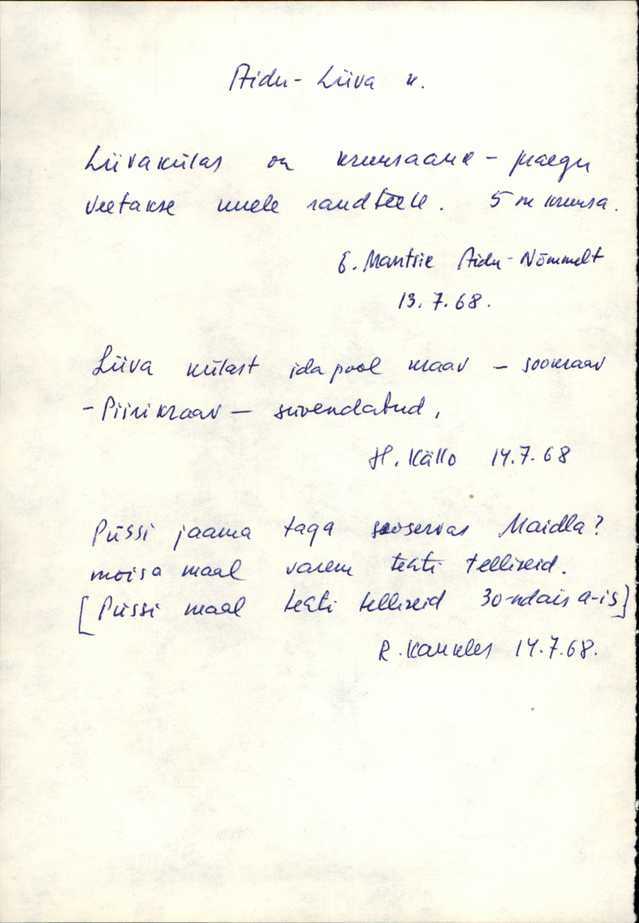 Aidu-Liiva k.
Liivakülas on kruusaauk - praegu
veetakse uuele randteele. 5 m kruusa.
E. Mantsie Aidu-Nõmmelt
13.7.68.
Liiva külast ida pool kraav - sookraav
- Piirikraav - süvendatud.
H. Källo 14.7.68
Püssi jaama taga sooservas Maidla?
moisa maal varem tehti telliseid.
[Püssi maal tehti telliseid 30-ndais a-is]
R. 14.7.68.